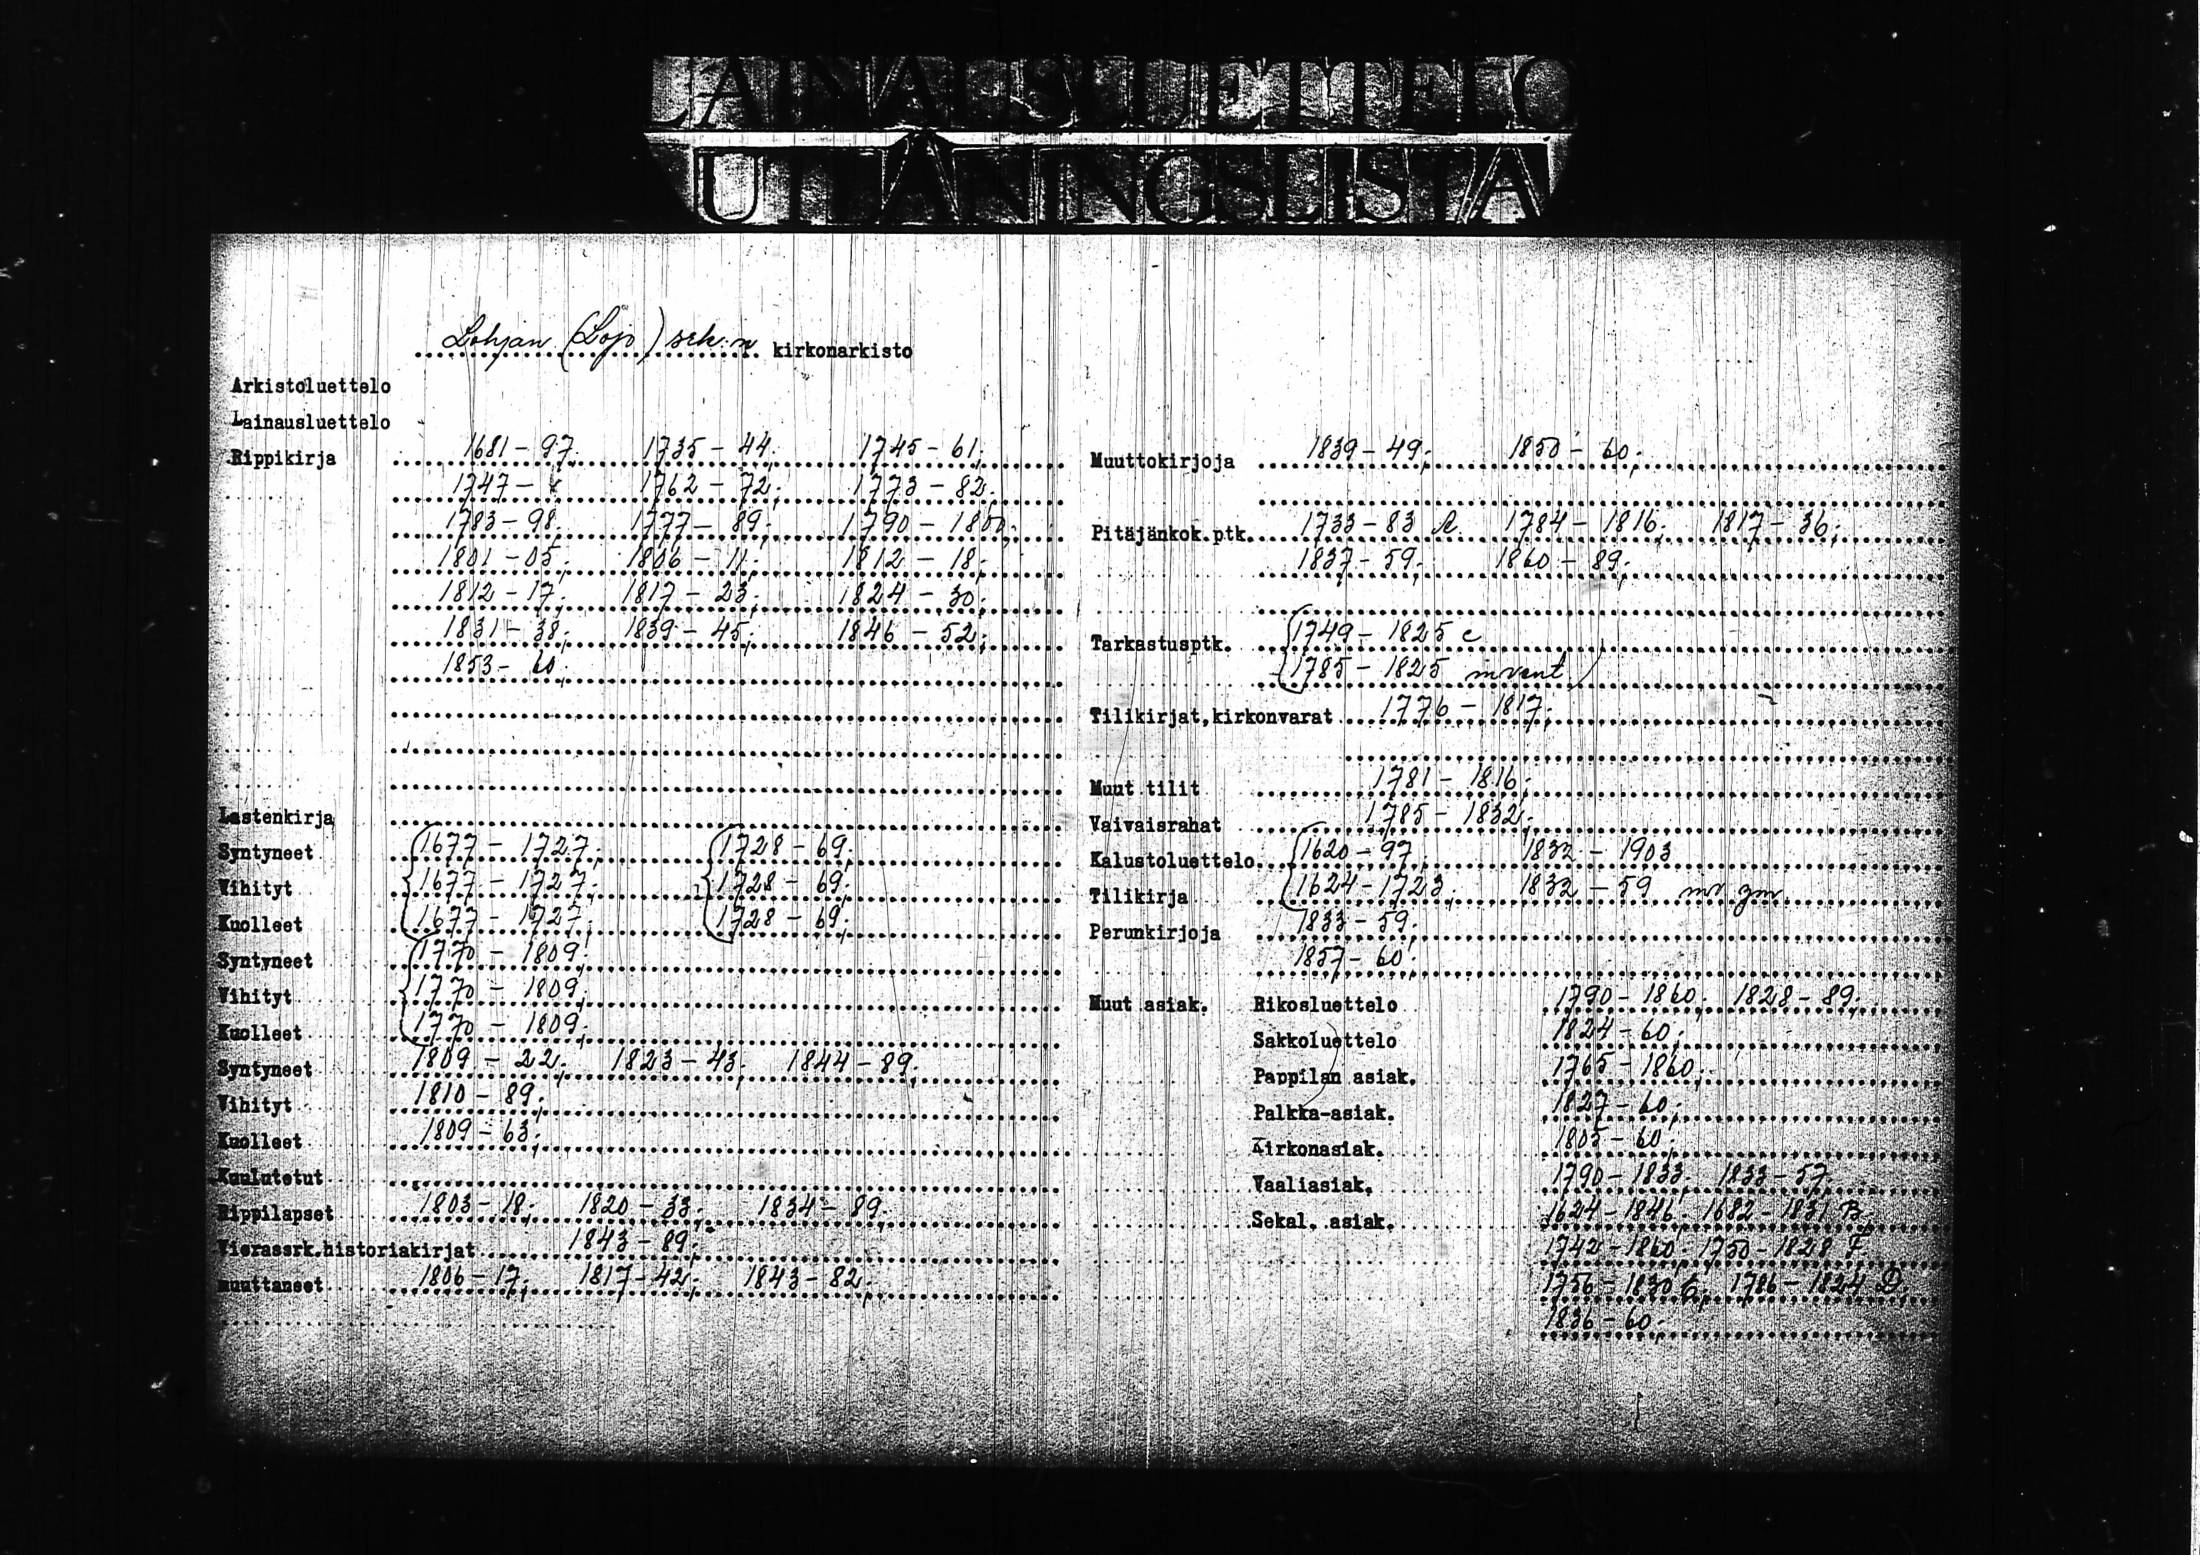 LAINAUSLUETTELO
UTLÅNINGSLISTA
Lohjan (Lojo) srk:n kirkonarkisto
Arkistoluettelo
Lainausluettelo
Rippikirja 1681-97; 1735-44; 1745-61;
1747- 1762-72; 1773-82;
1783-98; 1777-89; 1790-1800;
1801-05; 1806-11; 1812-18;
1812-17; 1817-23; 1824-30;
1831-38; 1839-45; 1846-52;
1853-60;
Lastenkirja
Syntyneet 1677-1727; 1728-69;
Vihityt 1677-1727; 1728-69;
Kuolleet 1677-1727; 1728-69;
Syntyneet 1770-1809;
Vihityt 1770-1809;
Kuolleet 1770-1809;
Syntyneet 1809-22; 1823-43; 1844-89;
Vihityt 1810-89;
Kuolleet 1809-63;
Kuulutetut
Rippilapset 1803-18; 1820-33; 1834-89;
Vierassrk.historiakirjat 1843-89;
muuttaneet 1806-17; 1817-42; 1843-82;
Muuttokirjoja 1839-49; 1850-60;
Pitäjänkok.ptk. 1733-83 A. 1784-1816; 1817-36;
1837-59; 1860-89;
Tarkastusptk. 1749-1825 c
1785-1825 invent
Tilikirjat,kirkonvarat 1776-1817;
Muut tilit 1781-1816;
Vaivaisrahat 1785-1832;
Kalustoluettelo 1620-97; 1832-1903
Tilikirja 1624-1723; 1832-59
Perunkirjoja 1833-59;
1857-60;
Muut asiak. Rikosluettelo 1790-1860; 1828-89;
Sakkoluettelo 1824-60;
Pappilan asiak. 1765-1860;
Palkka-asiak. 1827-60;
Kirkonasiak. 1805-60;
Vaaliasiak. 1790-1833; 1833-57
Sekal. asiak. 1624-1846; 1682-1831 B;
1742-1860; 1750-1828 F.
1756-1830 1786-1824 D;
1836-60;